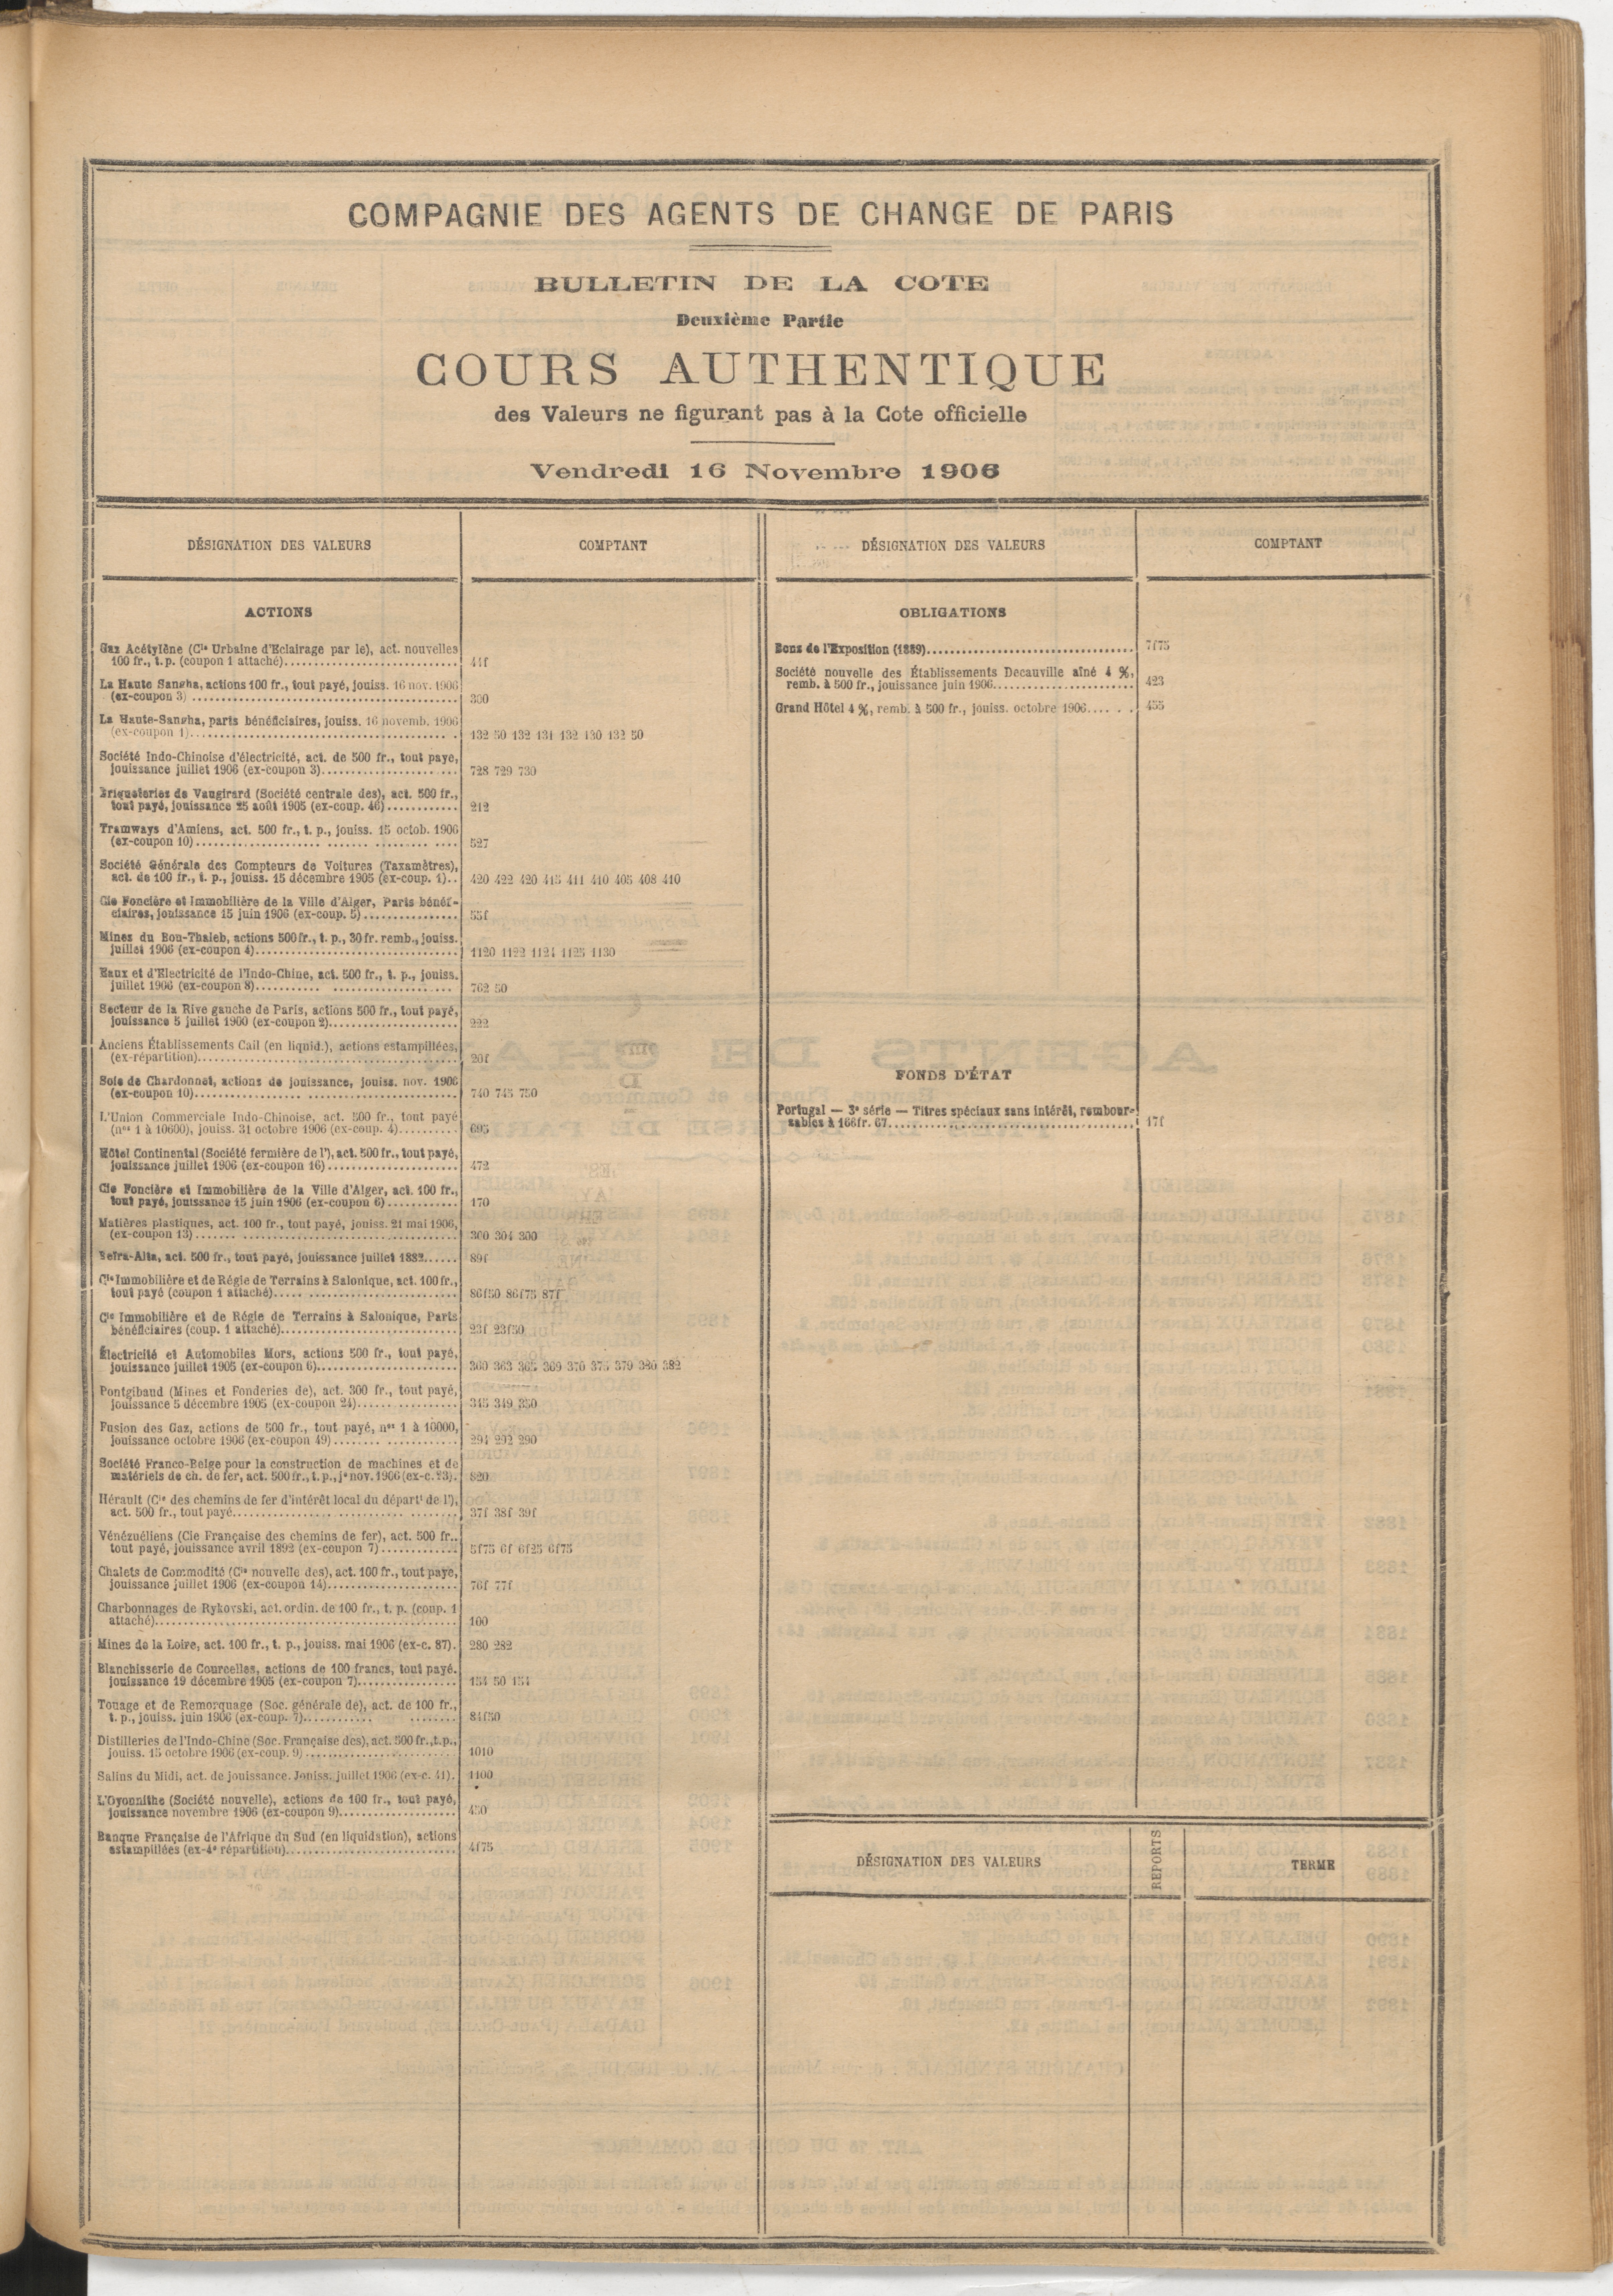 COMPAGNIE DES AGENTS DE CHANGE DE PARIS
BULLETIN DE LA COTE
Deuxième Partie
COURS AUTHENTIQUE
des Valeurs ne figurant pas à la Cote officielle
Vendredi 16 Novembre 1906
DÉSIGNATION DES VALEURS
COMPTANT
ACTIONS
Gaz Acétylène (Cie Urbaine d'Eclairage par le), act. nouvelles
100 fr., t. p. (coupon 1 attaché) 44f
La Haute Sangha, actions 100 fr., tout payé, jouiss. 16 nov. 1906
(ex-coupon 3) 300
La Haute-Sangha, parts bénéficiaires, jouiss. 16 novemb. 1906
(ex-coupon 1) 132 50 132 131 132 130 132 50
Société Indo-Chinoise d'électricité, act. de 500 fr., tout payé,
jouissance juillet 1906 (ex-coupon 3) 728 729 730
Briqueteries de Vaugirard (Société centrale des), act. 500 fr.,
tout payé, jouissance 25 août 1905 (ex-coup. 46) 212
Tramways d'Amiens, act. 500 fr., t. p., jouiss. 15 octob. 1906
(ex-coupon 10) 527
Société Générale des Compteurs de Voitures (Taxamètres),
act. de 100 fr., t. p., jouiss. 15 décembre 1905 (ex-coup. 1) 420 422 420 415 411 410 405 408 410
Cie Foncière et Immobilière de la Ville d'Alger, Parts bénéf-
ciaires, jouissance 15 juin 1906 (ex-coup. 5) 55f
Mines du Bou-Thaleb, actions 500 fr., t. p., 30 fr. remb., jouiss.
juillet 1906 (ex-coupon 4) 1120 1122 1124 1125 1130
Eaux et d'Electricité de l'Indo-Chine, act. 500 fr., t. p., jouiss.
juillet 1906 (ex-coupon 8) 762 50
Secteur de la Rive gauche de Paris, actions 500 fr., tout payé,
jouissance 5 juillet 1900 (ex-coupon 2) 222
Anciens Établissements Cail (en liquid.), actions estampillées,
(ex-répartition) 20f
Soie de Chardonnet, actions de jouissance, jouiss. nov. 1906
(ex-coupon 10) 740 745 750
L'Union Commerciale Indo-Chinoise, act. 500 fr., tout payé
(nos 1 à 10600), jouiss. 31 octobre 1906 (ex-coup. 4) 695
Hôtel Continental (Société fermière de l'), act. 500 fr., tout payé,
jouissance juillet 1906 (ex-coupon 16) 472
Cie Foncière et Immobilière de la Ville d'Alger, act. 100 fr.,
tout payé, jouissance 15 juin 1906 (ex-coupon 6) 170
Matières plastiques, act. 100 fr., tout payé, jouiss. 21 mai 1906,
(ex-coupon 13) 300 301 300
Beïra-Alta, act. 500 fr., tout payé, jouissance juillet 1882 89f
Cie Immobilière et de Régie de Terrains à Salonique, act. 100 fr.,
tout payé (coupon 1 attaché) 86f50 86f75 87f
Cie Immobilière et de Régie de Terrains à Salonique, Parts
bénéficiaires (coup. 1 attaché) 23f 23f50
Électricité et Automobiles Mors, actions 500 fr., tout payé,
jouissance juillet 1905 (ex-coupon 6) 360 363 365 369 370 375 379 380 382
Pontgibaud (Mines et Fonderies de), act. 300 fr., tout payé,
jouissance 5 décembre 1905 (ex-coupon 24) 345 349 350
Fusion des Gaz, actions de 500 fr., tout payé, nos 1 à 10000,
jouissance octobre 1906 (ex-coupon 49) 291 292 290
Société Franco-Belge pour la construction de machines et de
matériels de ch. de fer, act. 500 fr., t. p., je nov. 1906 (ex-c. 23). 820
Hérault (Cie des chemins de fer d'intérêt local du départt de l'),
act. 500 fr., tout payé 37f 38f 39f
Vénézuéliens (Cie Française des chemins de fer), act. 500 fr.,
tout payé, jouissance avril 1892 (ex-coupon 7) 5f75 6f 6f25 6f75
Chalets de Commodité (Cie nouvelle des), act. 100 fr., tout payé,
jouissance juillet 1906 (ex-coupon 14) 76f 77f
Charbonnages de Rykovski, act. ordin. de 100 fr., t. p. (coup. 1
attaché) 100
Mines de la Loire, act. 100 fr., t. p., jouiss. mai 1906 (ex-c. 87). 280 282
Blanchisserie de Courcelles, actions de 100 francs, tout payé.
jouissance 19 décembre 1905 (ex-coupon 7) 154 50 154
Touage et de Remorquage (Soc. générale de), act. de 100 fr.,
t. p., jouiss. juin 1906 (ex-coup. 7) 84f50
Distilleries de l'Indo-Chine (Soc. Française des), act. 500 fr., t.p.,
jouiss. 15 octobre 1906 (ex-coup. 9) 1010
Salins du Midi, act. de jouissance. Jouiss. juillet 1906 (ex-c. 41). 1100
L'Oyonnithe (Société nouvelle), actions de 100 fr., tout payé,
jouissance novembre 1906 (ex-coupon 9) 450
Banque Française de l'Afrique du Sud (en liquidation), actions
estampillées (ex-4e répartition) 4f75
DÉSIGNATION DES VALEURS
COMPTANT
OBLIGATIONS
Bons de l'Exposition (1889) 7f75
Société nouvelle des Établissements Decauville aîné 4 %,
remb. à 500 fr., jouissance juin 1906 423
Grand Hôtel 4 %, remb. à 500 fr., jouiss. octobre 1906 455
FONDS D'ÉTAT
Portugal — 3e série — Titres spéciaux sans intérêt, rembour-
sables à 166 fr. 67 17f
DÉSIGNATION DES VALEURS
REPORTS
TERME